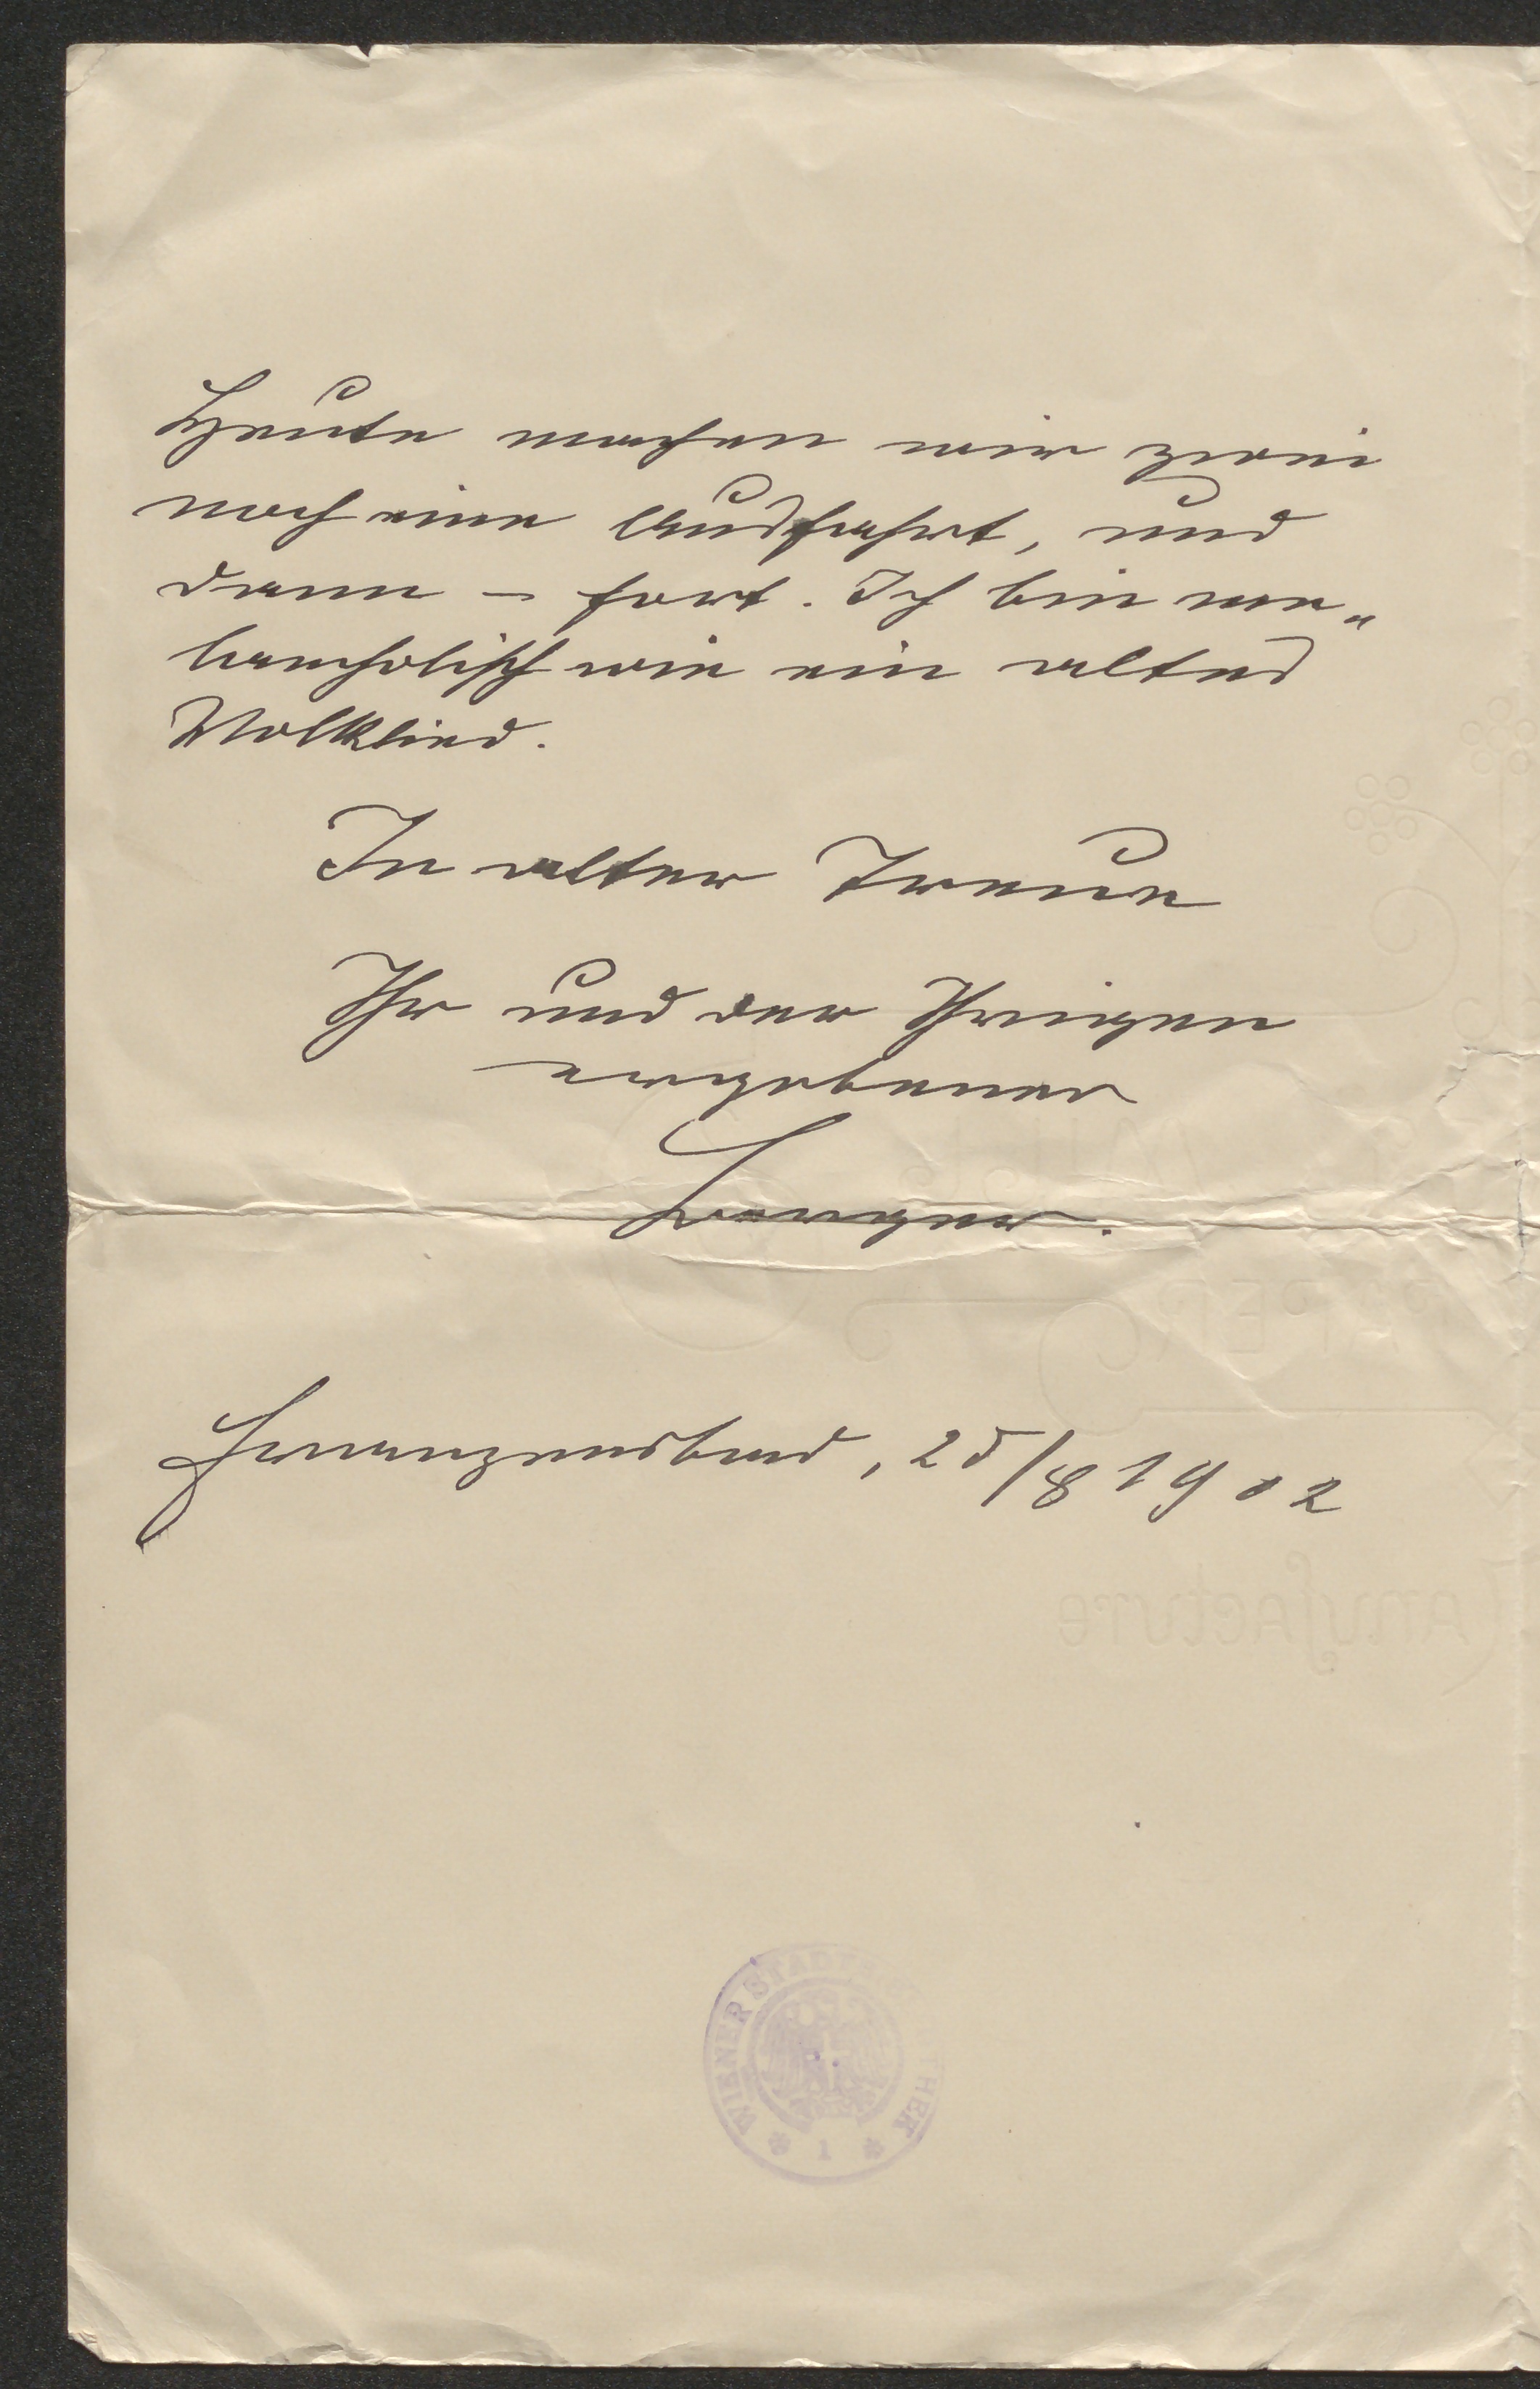 Heute machen wir zwei
noch eine Ausfahrt, und
dann – fort. Ich bin me„
lancholisch wie ein altes
Volkslied.
In alter Treue
Ihr und der Ihrigen
ergebener
Franzensbad, 25/8 1902
WIENER STADTBIBLIOTHEK
1